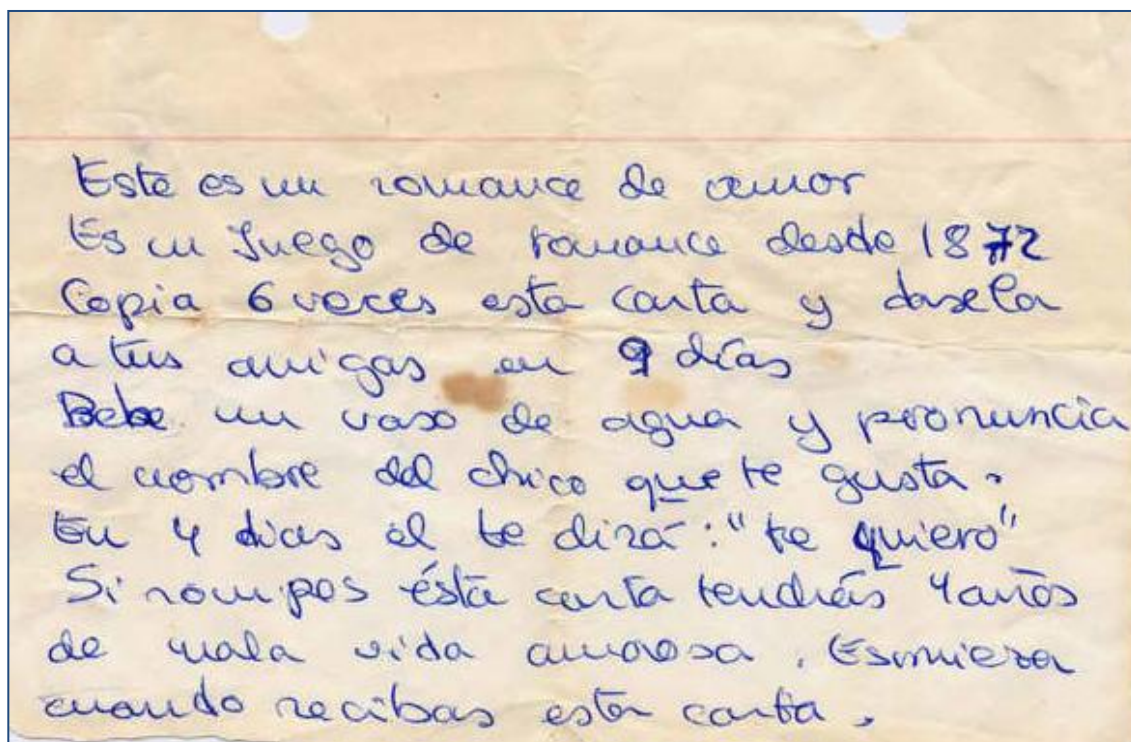 Este es un romance de amor
Es un Juego de romance desde 1872
Copia 6 veces esta carta y dasela
a tus amigas en 9 días
Bebe un vaso de agua y pronuncia
el nombre del chico que te gusta.
En 4 dias el te dirá: "te quiero"
Si rompes ésta carta tendrás 4 años
de mala vida amorosa. Esmieza
cuando recibas esta carta.